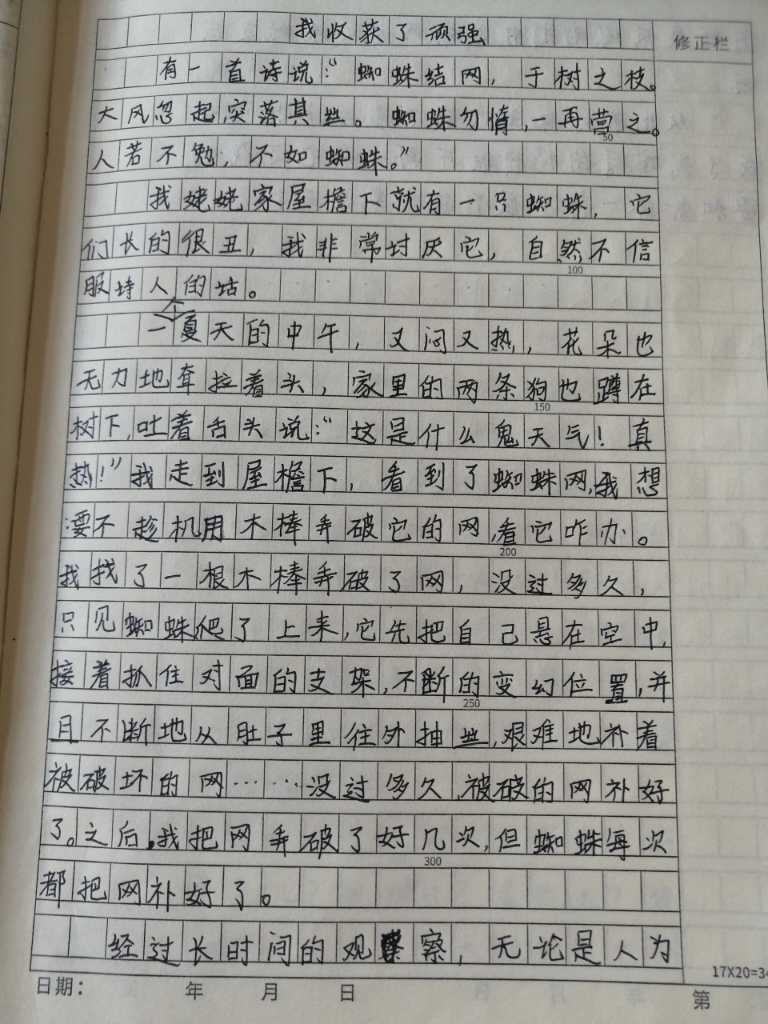 我收获了顽强
修正栏
有一首诗说:“蜘蛛结网，于树之枝。
大风忽起，突落其丝。蜘蛛勿惰，一再营之。
50
人若不勉，不如蜘蛛。”
我姥姥家屋檐下就有一只蜘蛛，它
们长的很丑，我非常讨厌它，自然不信
100
服诗人的话。
一个夏天的中午，又闷又热，花朵也
无力地耷拉着头，家里的两条狗也蹲在
150
树下，吐着舌头说:“这是什么鬼天气！真
热！”我走到屋檐下，看到了蜘蛛网，我想
要不趁机用木棒弄破它的网，看它咋办。
200
我找了一根木棒弄破了网，没过多久，
只见蜘蛛爬了上来，它先把自己悬在空中，
接着抓住对面的支架，不断的变幻位置，并
250
且不断地从肚子里往外抽丝，艰难地补着
被破坏的网……没过多久，被破的网补好
了。之后，我把网弄破了好几次，但蜘蛛每次
300
都把网补好了。
经过长时间的观察，无论是人为
17X20=34
日期： 年 月 日 第